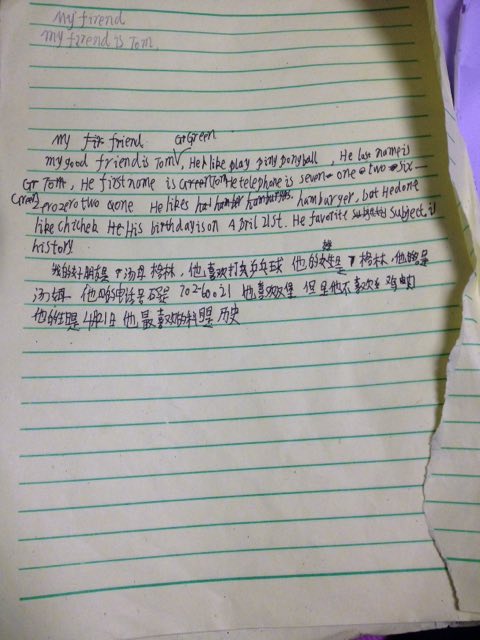 My firend
my firend is Tom.
My fir friend Gr Green
my good friend is Tom, He like play ping pongball, He last name is
Gr Tom, He first name is Green Tom He telephone is seven one two six
Green Zero zero two one He likes hamburgers, hamburger, but He done
like chichek He His birthday is on April 21st. He favorite subject is
history
我的好朋友是 汤姆 格林，他喜欢打乒乓球 他的姓是 格林，他的名是
汤姆 他的电话号码是 702-60021 他喜欢汉堡 但是他不喜欢 鸡肉
他的生日是4月21日 他最喜欢的科目是 历史